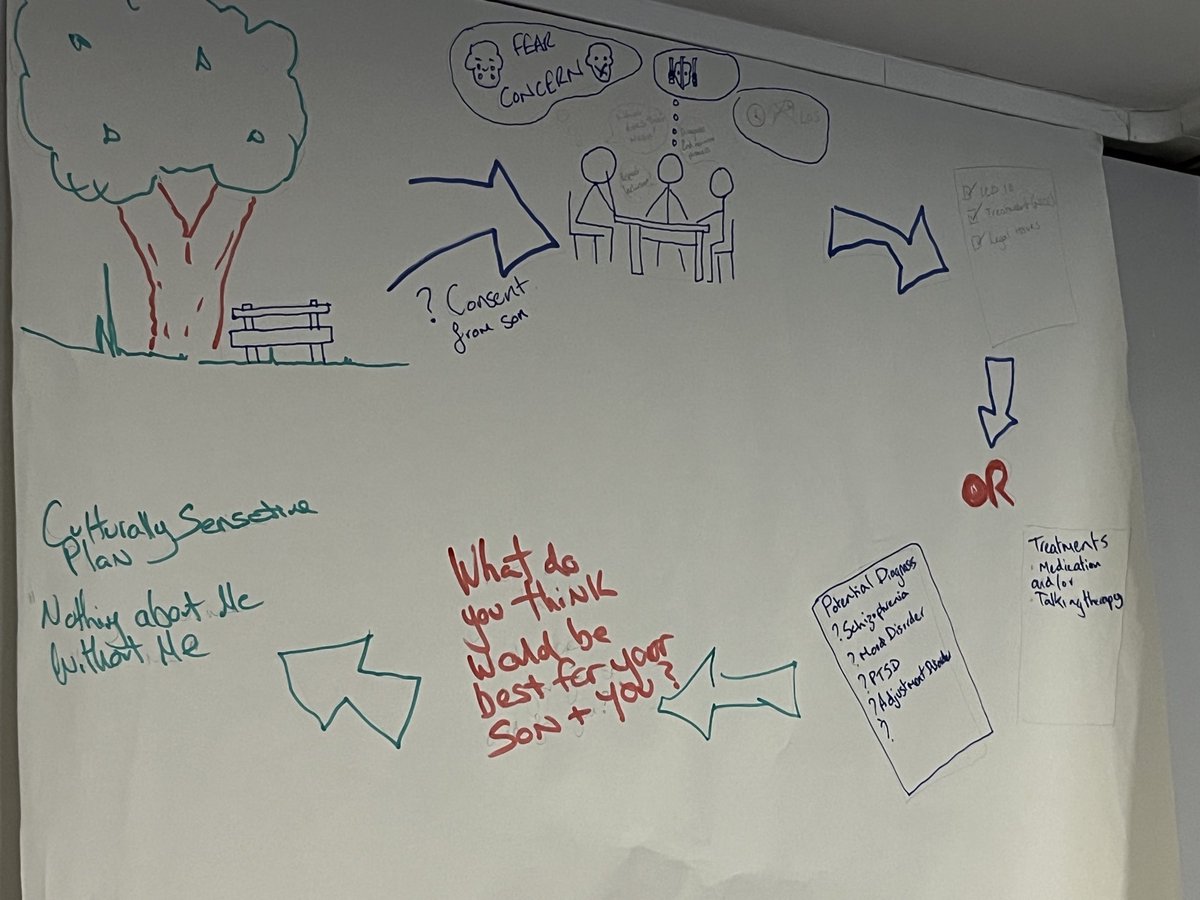 FEAR
CONCERN
LOS
? Consent
from son
ICD 10
Treatment
Legal Issues
OR
Treatments
· Medication
and/or
· Talking therapy
Potential Diagnosis
? Schizophrenia
? Mood Disorder
? PTSD
? Adjustment Disorder
?
What do
you think
would be
best for your
son + you?
Culturally Sensetive
Plan
Nothing about Me
Without Me